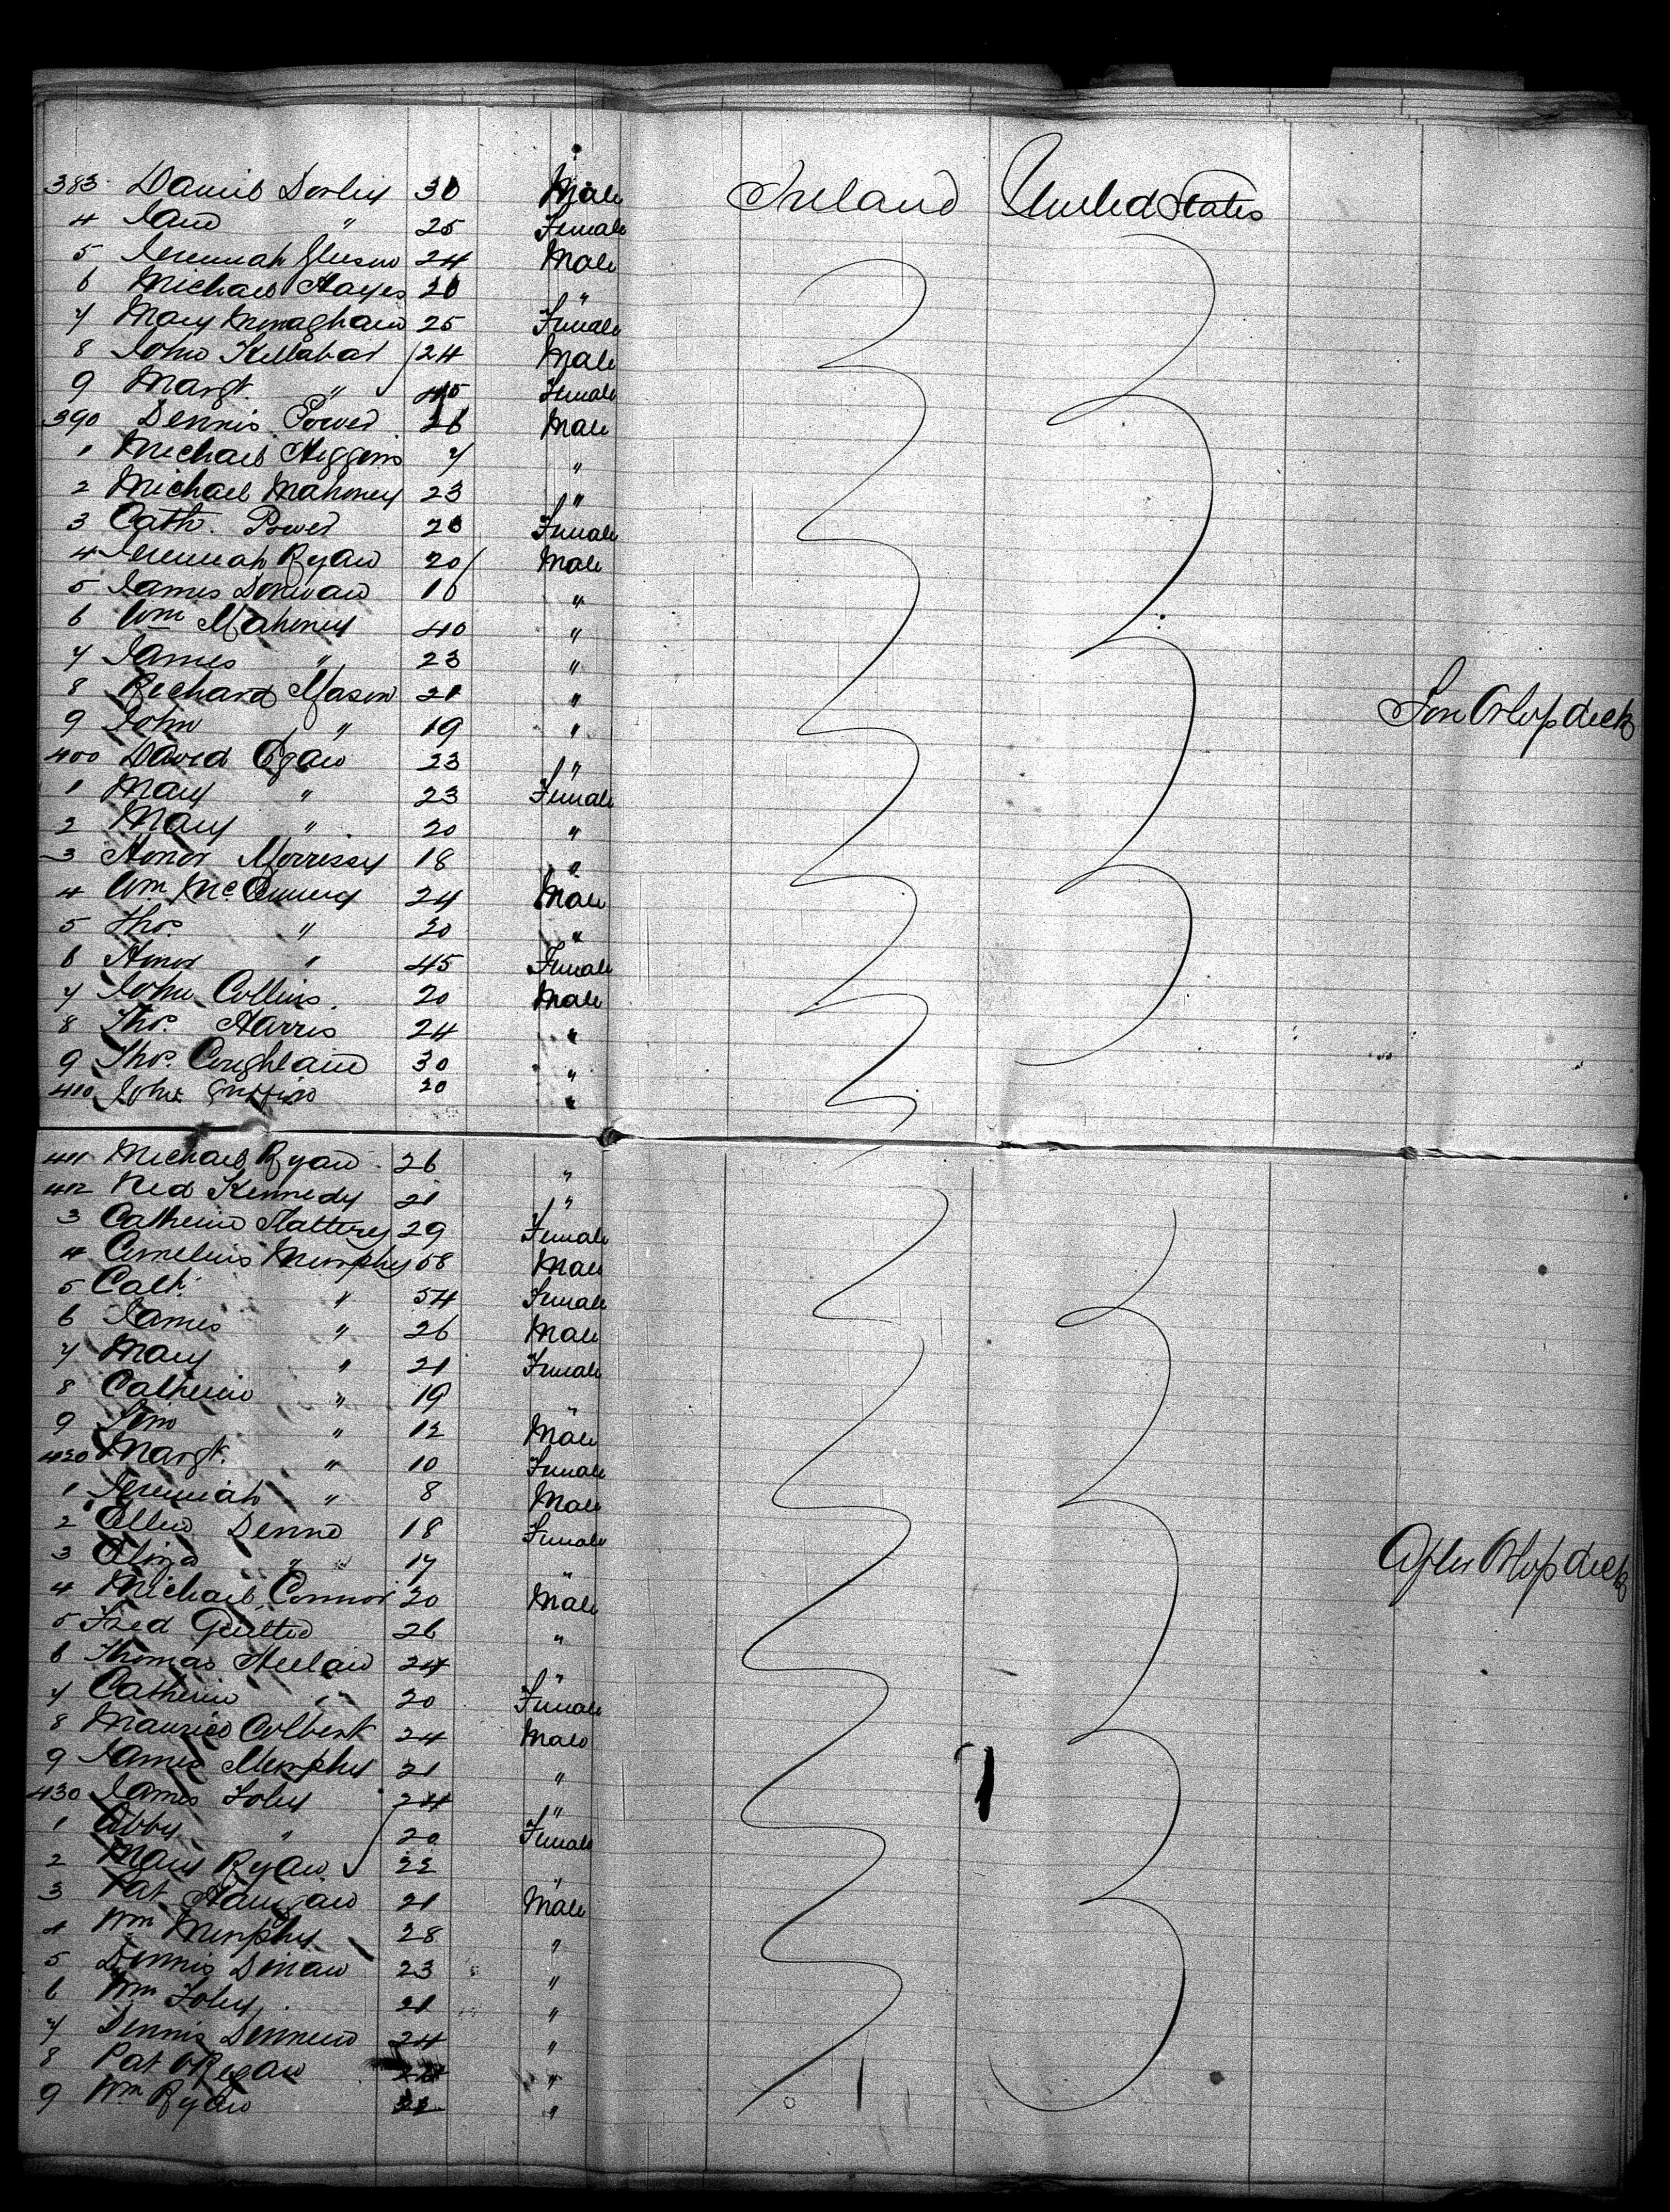 383 Daniel Dorley 30 Male Ireland United States
4 Jane " 25 Female
5 Jeremiah Gleeson 24 Male
6 Michael Hayes 20 "
7 Mary Monaghan 25 Female
8 John Kellahar 24 Male
9 Margt. " Female
390 Dennis Power 26 Male
1 Michael Higgins 7 "
2 Michael Mahoney 23 "
3 Cath. Power 20 Female
4 Jeremiah Ryan 20 Male
5 James Donovan 16 "
6 Wm Mahoney 40 "
7 James " 23 "
8 Richard Mason 21 "
9 John " 19 " Fore Orlop deck
400 David Egan 23 "
1 Mary " 23 Female
2 Mary " 20 "
3 Honor Morrissey 18 "
4 Wm Mc 24 Male
5 Thos. " 20 "
6 Honor " 45 Female
7 John Collins 20 Male
8 Thos. Harris 24 "
9 Thos. Coughlan 30 "
410 John Griffin 20 "
411 Michael Ryan 26 "
412 Ned Kennedy 21 "
3 Catherine Slattery 29 Female
4 Cornelius Murphy 58 Male
5 Cath. " 54 Female
6 James " 26 Male
7 Mary " 21 Female
8 Catherine " 19 "
9 Tim " 12 Male
420 Margt. " 10 Female
1 Jeremiah " 8 Male
2 Ellen Denne 18 Female
3 Eliza " 17 "
4 Michael Connor 20 Male After Orlop deck
5 Fred 26 "
6 Thomas Heelan 24 "
7 Catherine " 20 Female
8 Maurice Colbert 24 Male
9 James Murphy 21 "
430 James Foley 24 "
1 Abby " 20 Female
2 Mary Ryan 22 "
3 Pat 21 Male
4 Wm Murphy 28 "
5 Dennis Dinan 23 "
6 Wm Foley 21 "
7 Dennis 24 "
8 Pat O'Regan "
9 Wm Ryan 22 "